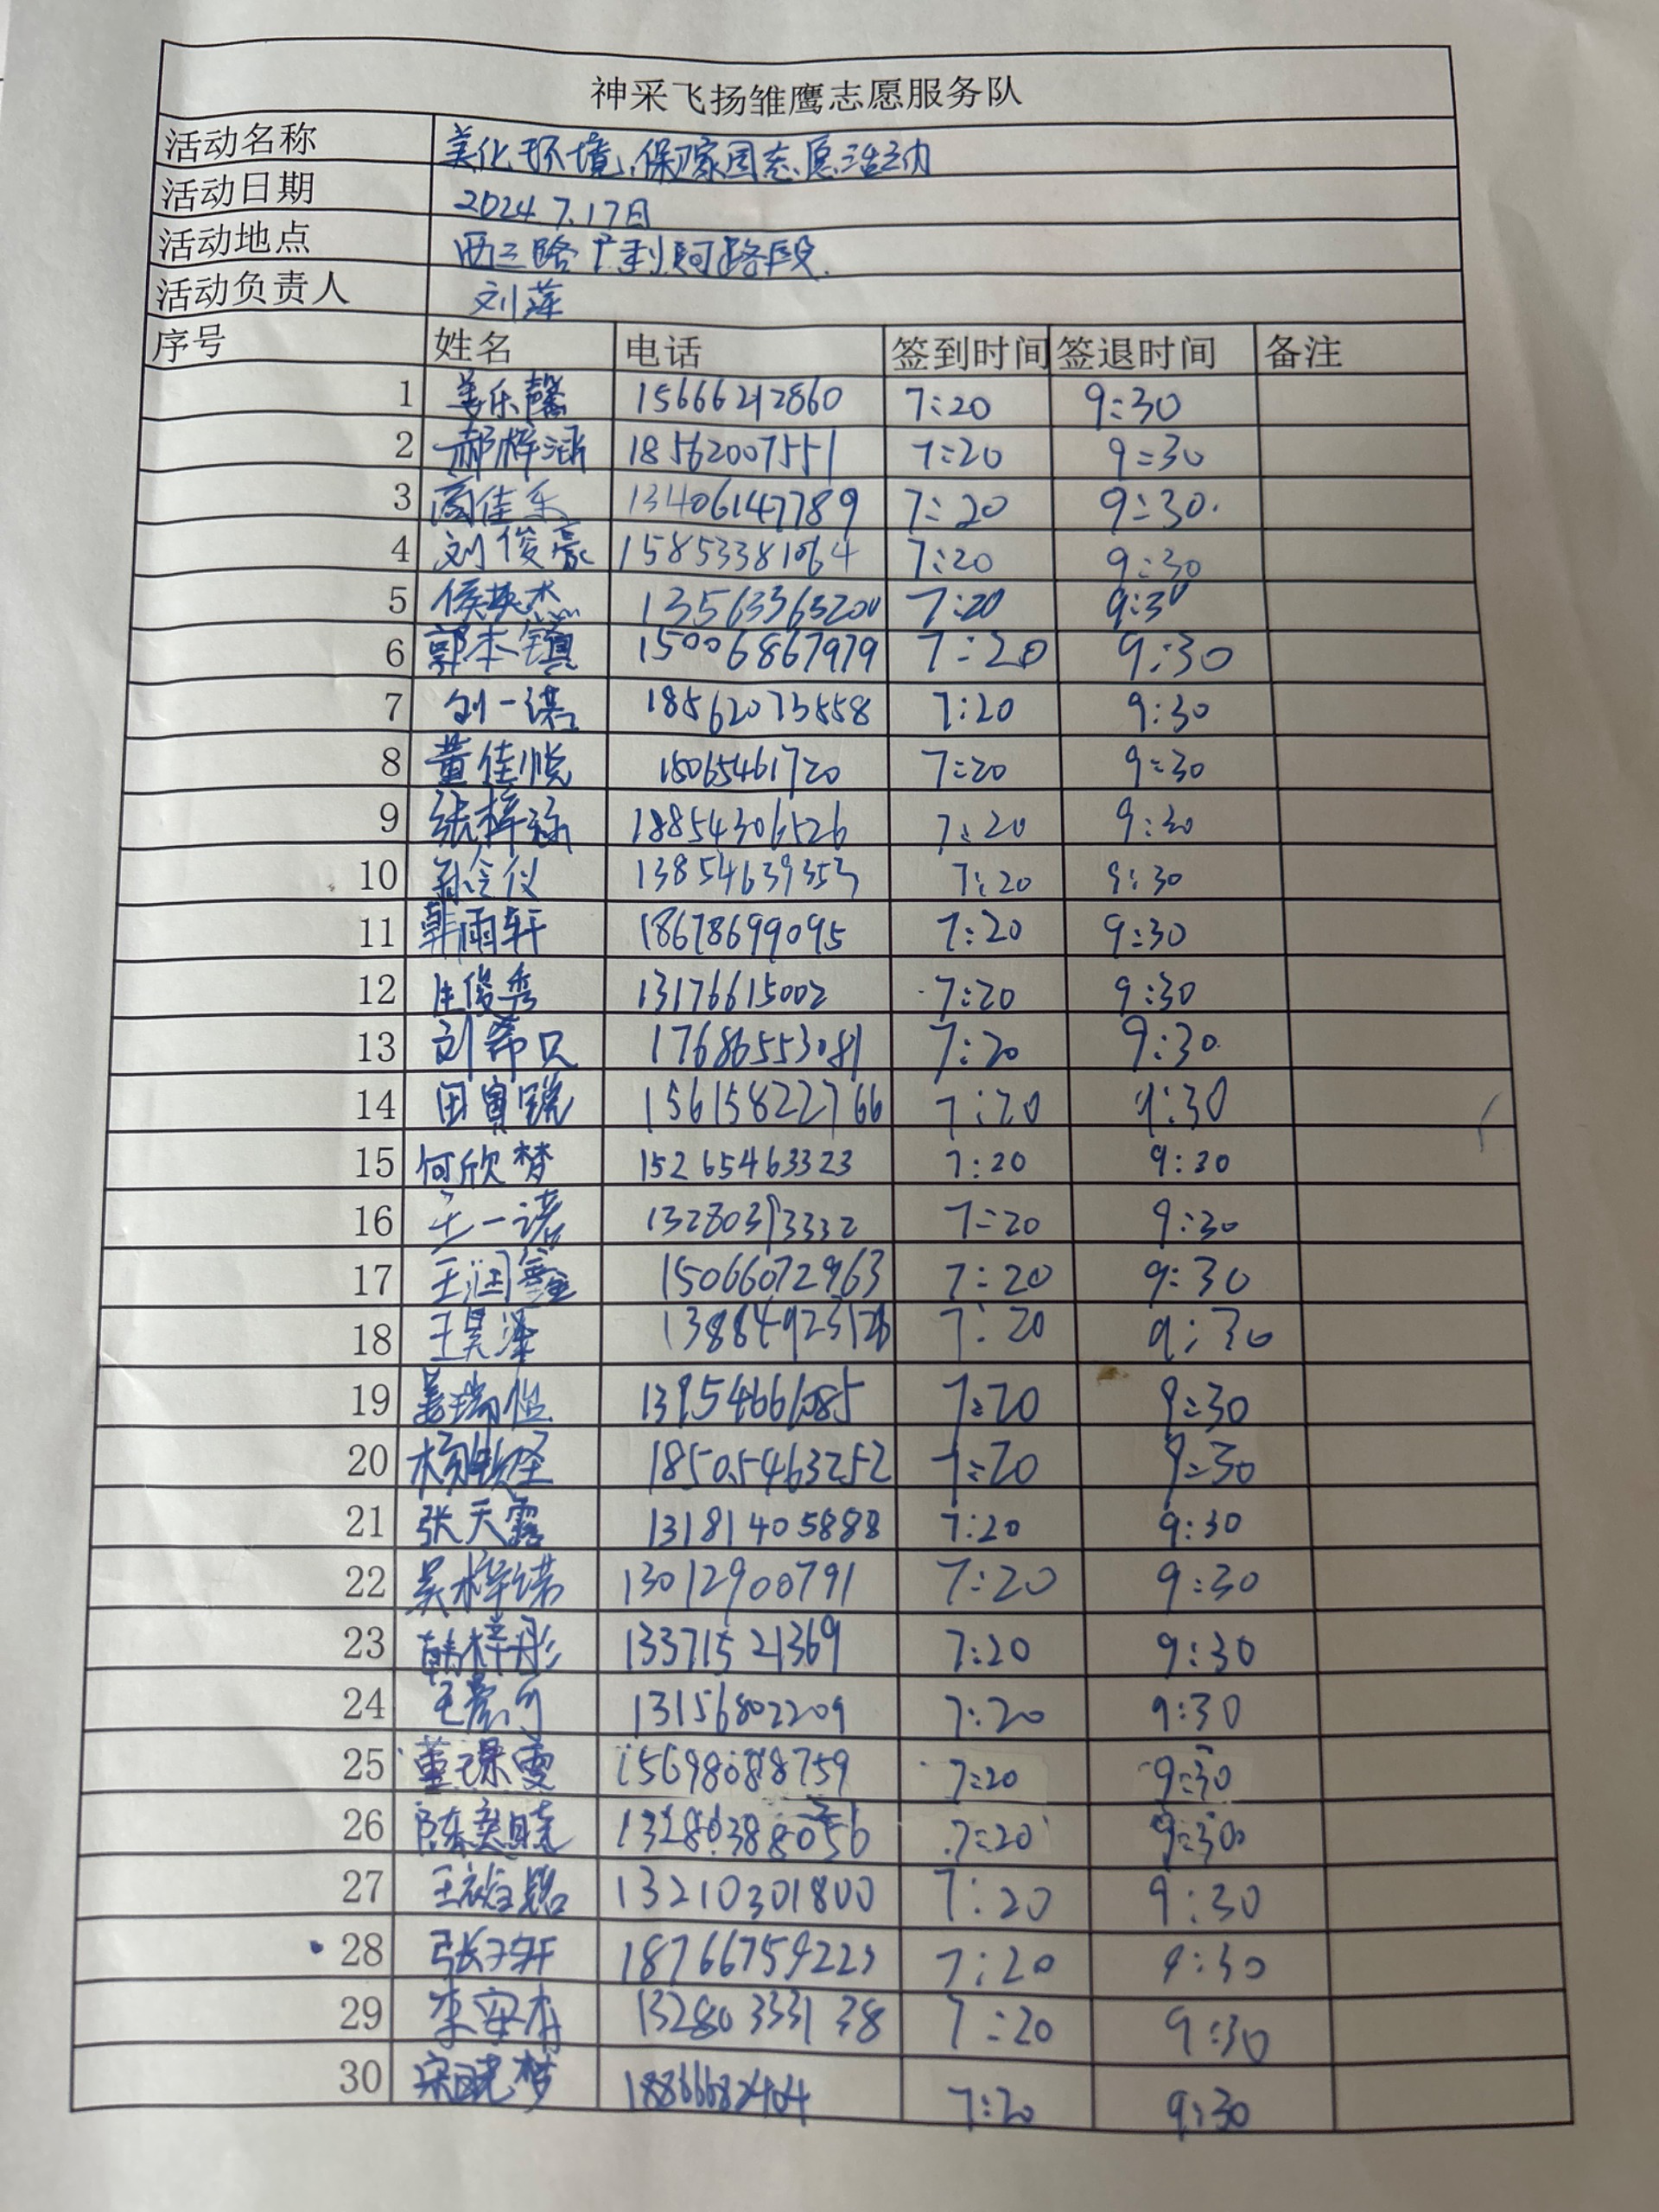 神采飞扬雏鹰志愿服务队
活动名称 美化环境,保卫家园志愿活动
活动日期 2024 7.17日
活动地点 西三路广利河路段.
活动负责人 刘萍
序号 姓名 电话 签到时间 签退时间 备注
1 姜乐馨 15666212860 7:20 9:30
2 郝梓涵 18562007551 7:20 9:30
3 商佳乐 13406147789 7:20 9:30.
4 刘俊豪 15853381064 7:20 9:30
5 侯英杰 13563365200 7:20 9:30
6 郭本镇 15006867979 7:20 9:30
7 刘一诺 18562073558 7:20 9:30
8 董佳悦 15065461720 7:20 9:30
9 张梓 18854306526 7:20 9:30
10 孙令仪 13854639353 7:20 9:30
11 韩雨轩 18678699095 7:20 9:30
12 俊秀 13176615002 7:20 9:30
13 刘 17686553081 7:20 9:30
14 田 15615822766 7:20 9:30
15 何欣梦 15265463323 7:20 9:30
16 王一诺 13280393332 7:20 9:30
17 王润鑫 15066072963 7:20 9:30
18 王昊泽 7:20 9:30
19 姜瑞恒 13954666085 7:20 9:30
20 杨 18505463252 7:20 9:30
21 张天露 13181405888 7:20 9:30
22 吴梓诺 13012900791 7:20 9:30
23 韩梓彤 13371521369 7:20 9:30
24 王 13156802209 7:20 9:30
25 董璟雯 15698088759 7:20 9:30
26 陈奕晓 13280388056 7:20 9:30
27 王 13210301800 7:20 9:30
28 张子轩 18766759223 7:20 9:30
29 李 13280333138 7:20 9:30
30 宋晓梦 18866682404 7:20 9:30